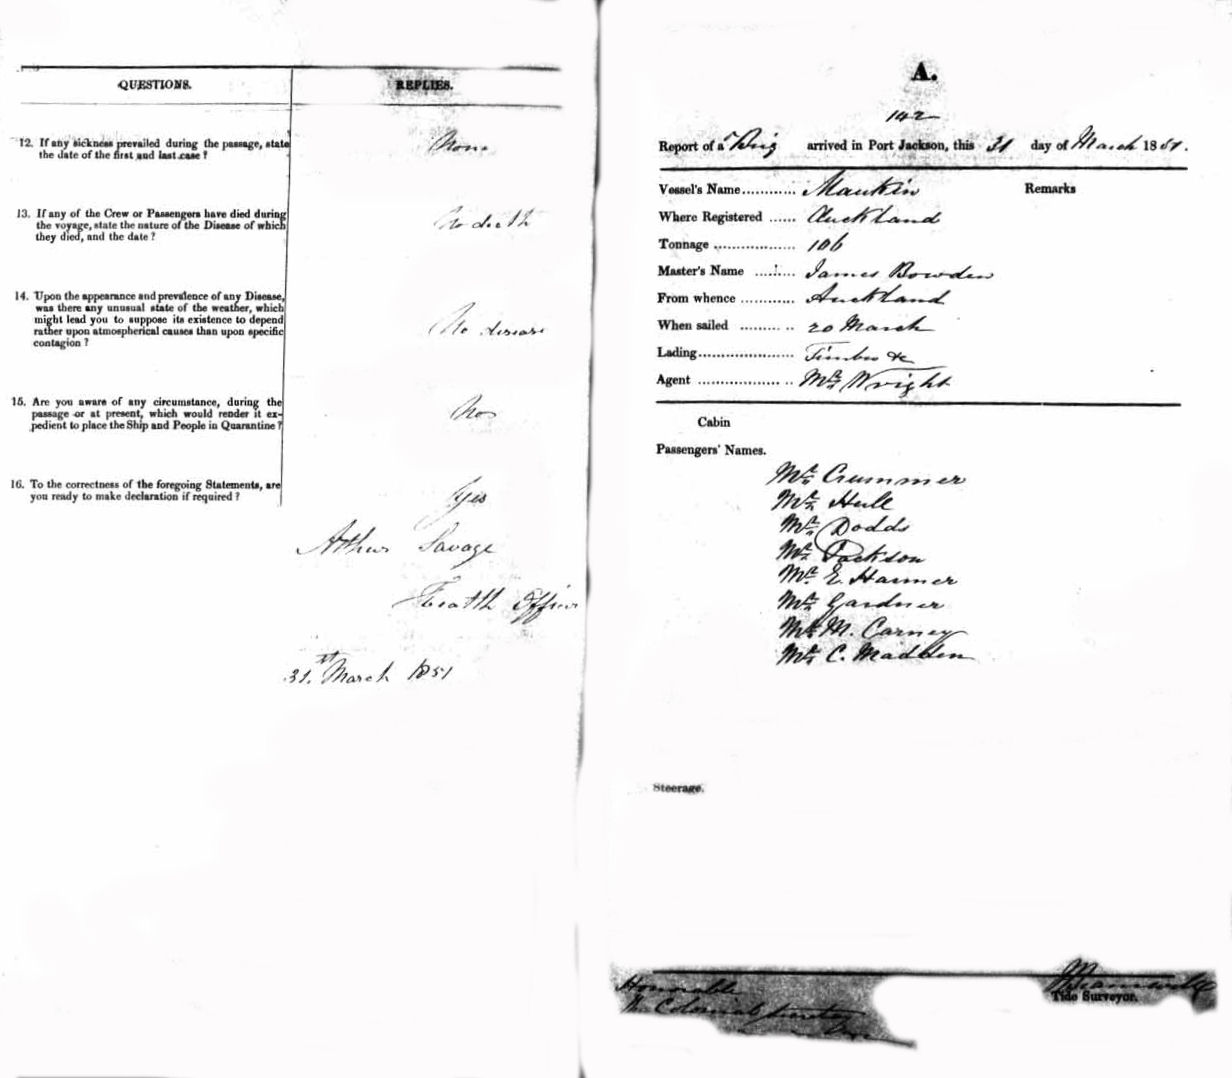 QUESTIONS.
REPLIES.
12. If any sickness prevailed during the passage, state
the date of the first and last case ?
None
13. If any of the Crew or Passengers have died during
the voyage, state the nature of the Disease of which
they died, and the date ?
No death
14. Upon the appearance and prevalence of any Disease,
was there any unusual state of the weather, which
might lead you to suppose its existence to depend
rather upon atmospherical causes than upon specific
contagion ?
No disease
15. Are you aware of any circumstance, during the
passage or at present, which would render it ex-
pedient to place the Ship and People in Quarantine ?
No
16. To the correctness of the foregoing Statements, are
you ready to make declaration if required ?
Yes
Arthur Savage
Health Officer
31st March 1851
A.
142
Report of a Brig arrived in Port Jackson, this 31 day of March 1851.
Vessel's Name ............ Maukin
Remarks
Where Registered ...... Auckland
Tonnage .................. 106
Master's Name ......... James Bowden
From whence ............ Auckland
When sailed ............ 20 March
Lading...................... Timber &c
Agent ..................... Mr Wright
Cabin
Passengers' Names.
Mr Crummer
Mr Hull
Mr Dodds
Mr Jackson
Mr E. Hanner
Mr Gardner
Mr M. Carney
Mr C. Madden
Steerage.
Honorable
The Colonial Secretary
Tide Surveyor.